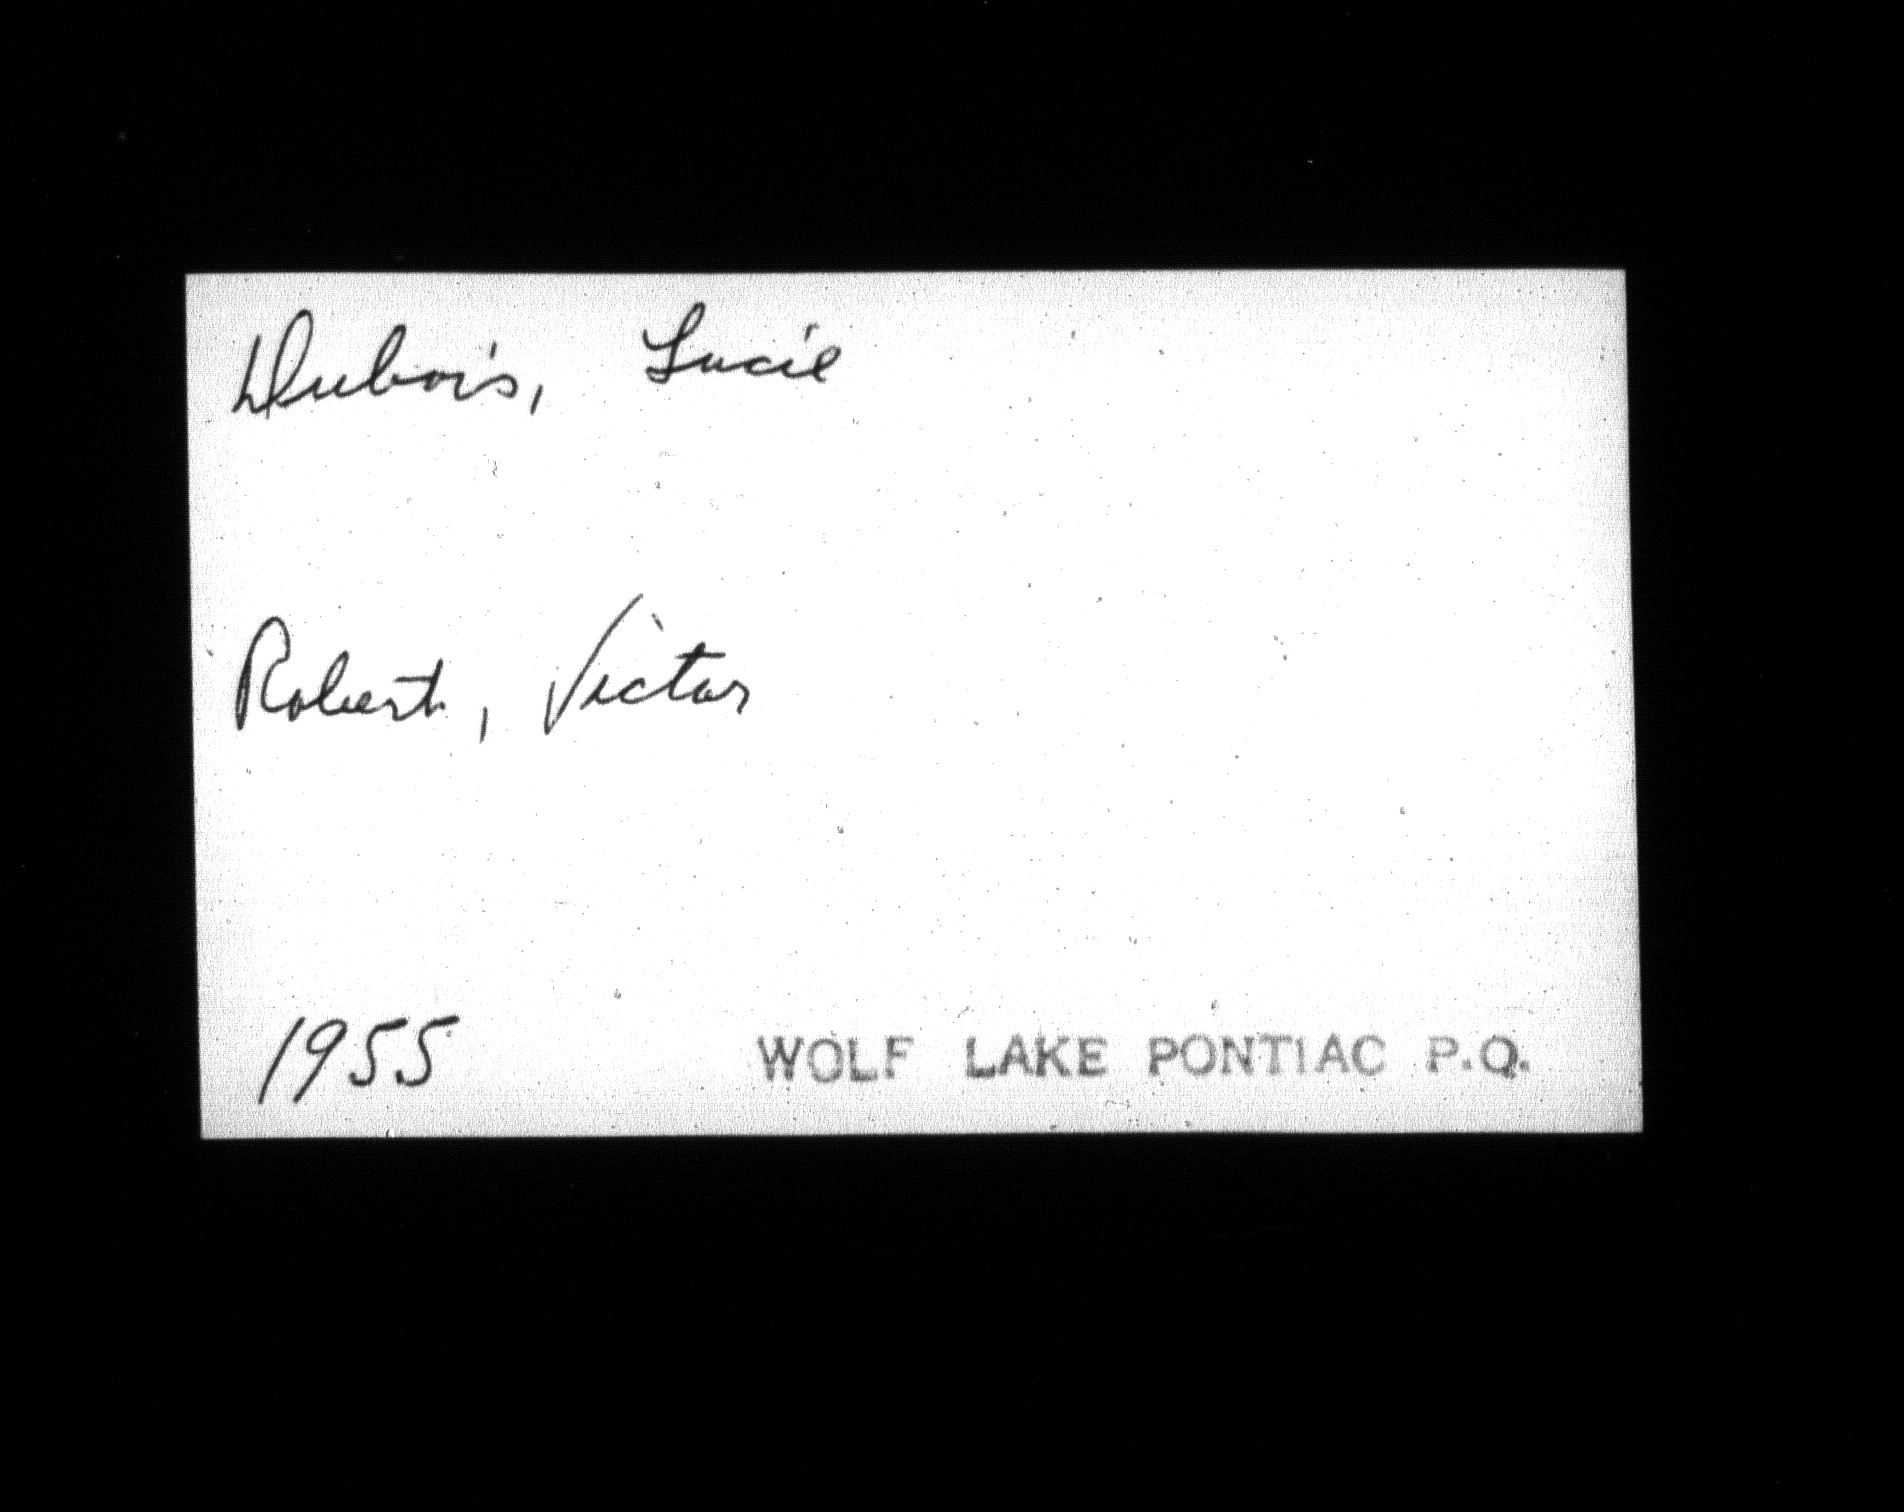 Dubois, Lucie
Robert, Victor
1955 WOLF LAKE PONTIAC P.Q.